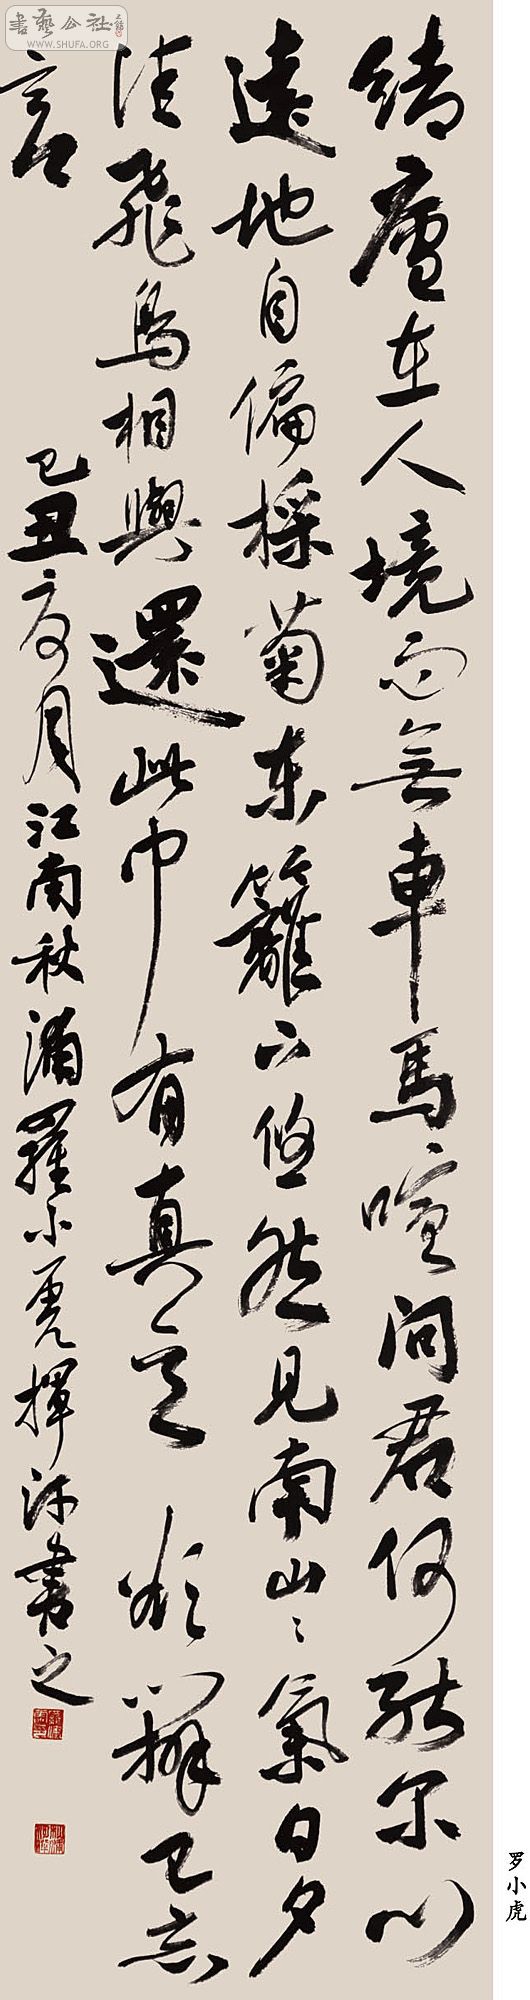 書藝公社
WWW.SHUFA.ORG
結廬在人境而無車馬喧問君何能尔心
遠地自偏採菊東籬下悠然見南山〻氣日夕
佳飛鳥相與還此中有真意欲辨已忘
言
己丑夏月江南秋浦羅小虎揮汗書之
罗小虎